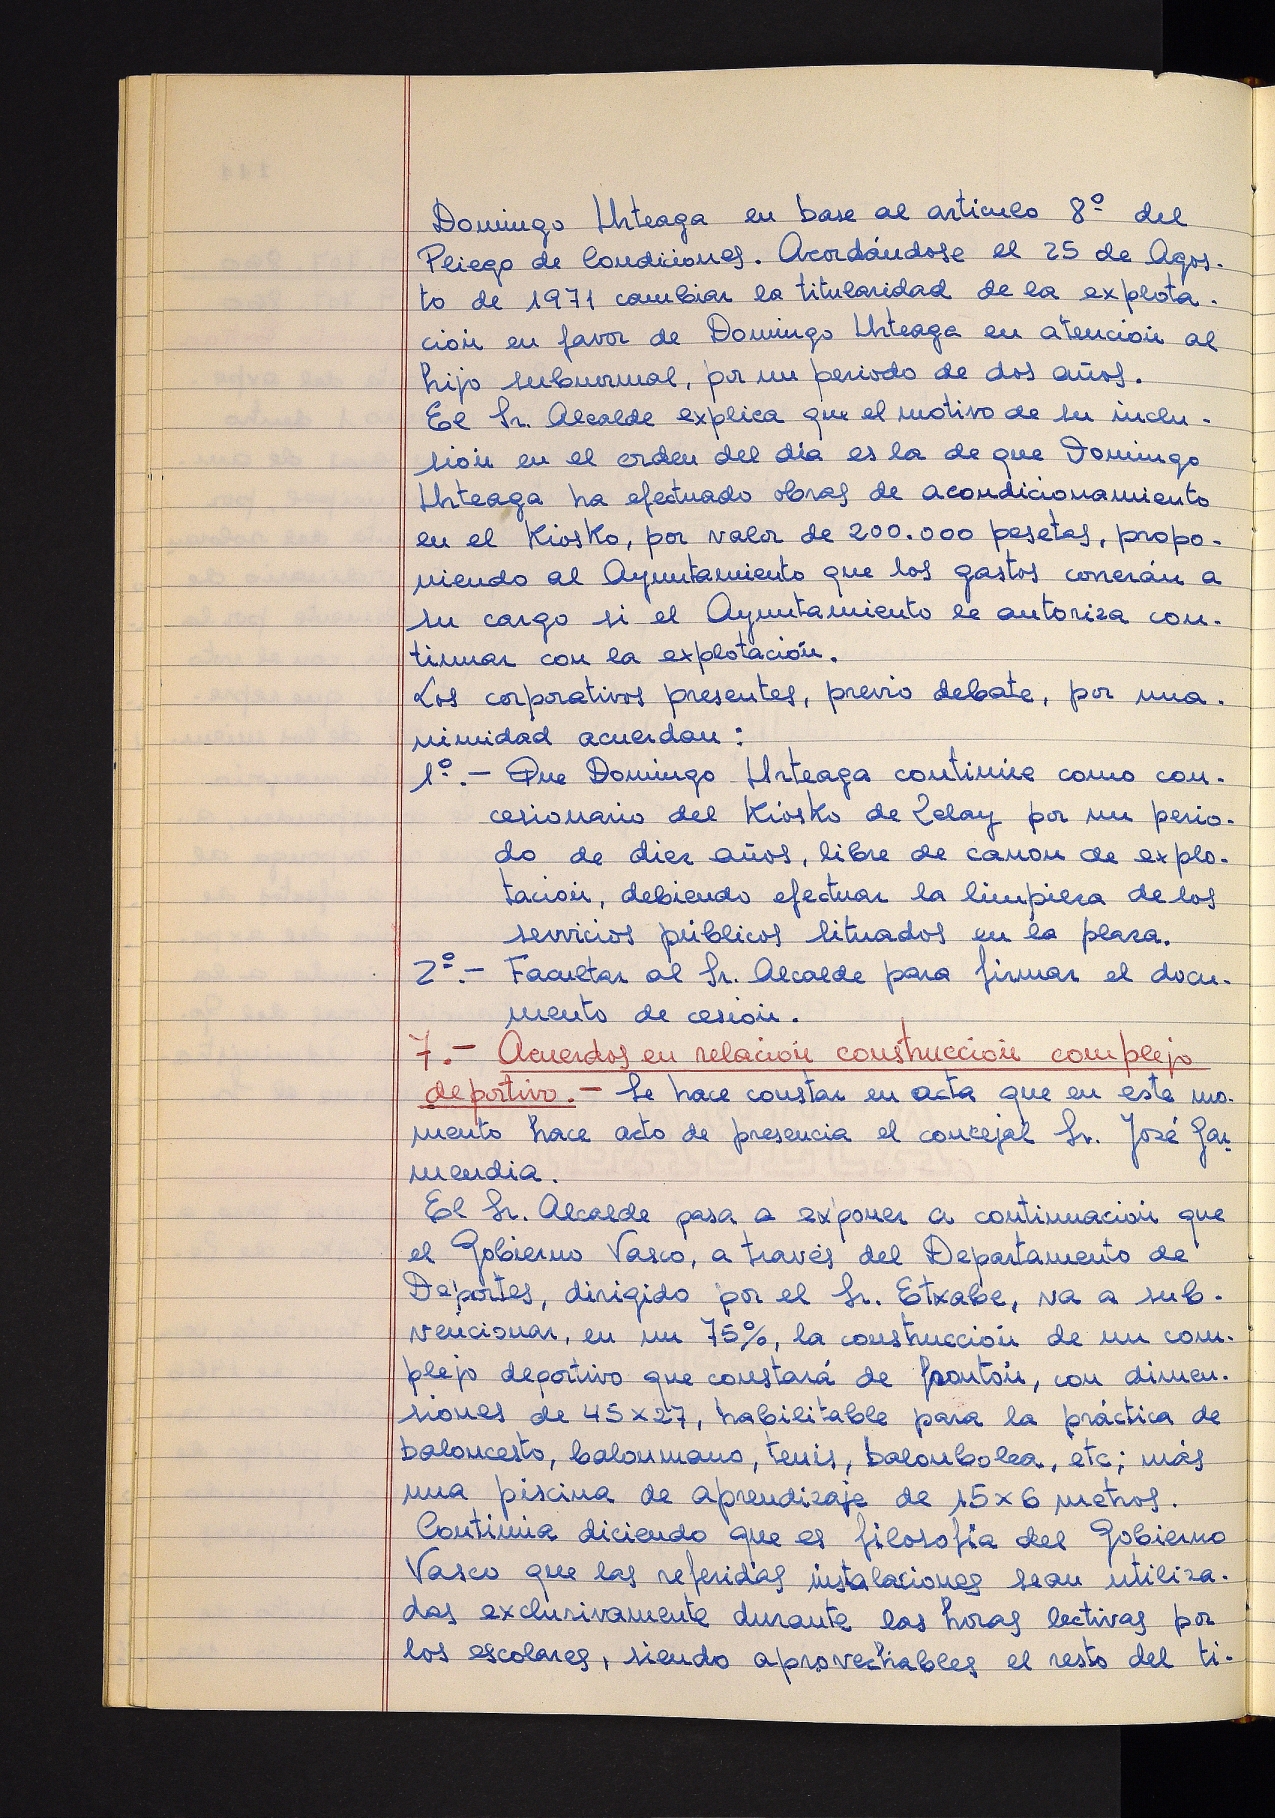 Domingo Urteaga en base al articulo 8º del
Pliego de Condiciones. Acordándose el 25 de Agos-
to de 1971 cambiar la titularidad de la explota-
ción en favor de Domingo Urteaga en atención al
hijo subnormal, por un periodo de dos años.
El Sr. Alcalde explica que el motivo de su inclu-
sión en el orden del día es la de que Domingo
Urteaga ha efectuado obras de acondicionamiento
en el Kiosko, por valor de 200.000 pesetas, propo-
niendo al Ayuntamiento que los gastos correrán a
su cargo si el Ayuntamiento le autoriza con-
tinuar con la explotación.
Los corporativos presentes, previo debate, por una-
nimidad acuerdan:
1º.- Que Domingo Urteaga continúe como con-
cesionario del Kiosko de Zelay por un perio-
do de diez años, libre de canon de explo-
tación, debiendo efectuar la limpieza de los
servicios públicos situados en la plaza.
2º.- Facultar al Sr. Alcalde para firmar el docu-
mento de cesión.
7.- Acuerdos en relación construcción complejo
deportivo.- Se hace constar en acta que en este mo-
mento hace acto de presencia el concejal Sr. José Gar-
mendia.
El Sr. Alcalde pasa a exponer a continuación que
el Gobierno Vasco, a través del Departamento de
Deportes, dirigido por el Sr. Etxabe, va a sub-
vencionar, en un 75%, la construcción de un com-
plejo deportivo que constará de frontón, con dimen-
siones de 45x27, habilitable para la práctica de
baloncesto, balonmano, tenis, balonbolea, etc; más
una piscina de aprendizaje de 15x6 metros.
Continúa diciendo que es filosofía del Gobierno
Vasco que las referidas instalaciones sean utiliza-
das exclusivamente durante las horas lectivas por
los escolares, siendo aprovechables el resto del ti-